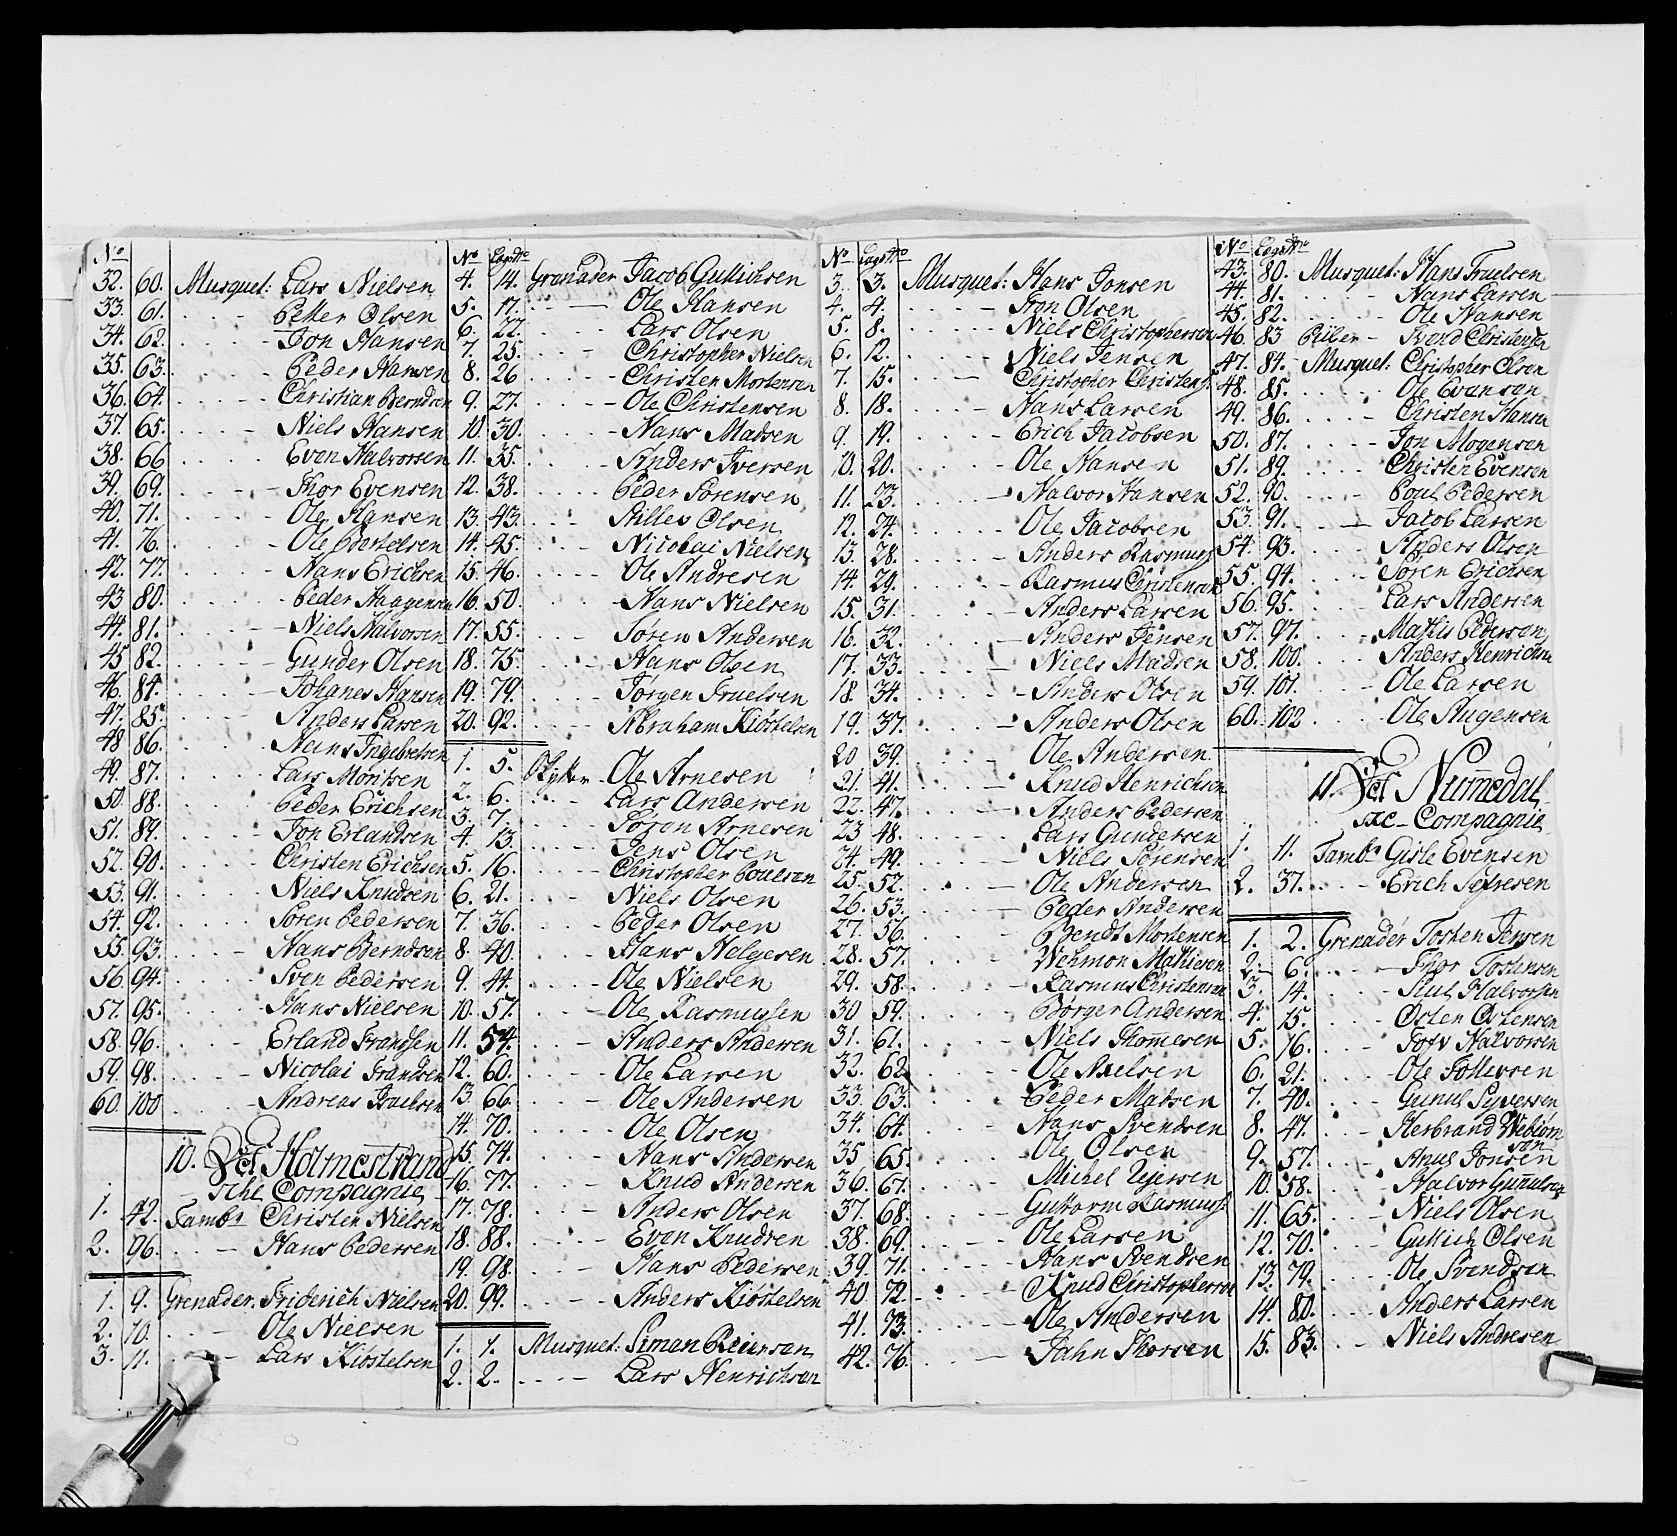 No
32. 60. Musquet: Lars Nielsen
33. 61. Petter Olsen
34. 62. Jon Hansen
35. 63. Peder Hansen
36. 64. Christian Berndsen
37. 65. Niels Hansen
38. 66 Even Halvorsen
39. 69. Thor Evensen
40. 71. Ole Hansen
41. 76. Ole Bertelsen
42. 77. Hans Erichsen
43 80. Peder Haagensen
44. 81. Niels Halvorsen
45 82. Gunder Olsen
46. 84. Johanes Hansen
47. 85. Anders Larsen
48 86. Hans Ingebretsen
49. 87. Lars Moritsen
50. 88. Peder Erichsen
51. 89. Jon Erlandsen
52. 90. Christen Erichsen
53. 91. Niels Knudsen
54. 92. Sören Pedersen
55. 93. Hans Berndsen
56. 94. Sven Pedersen
57. 95. Hans Nielsen
58. 96. Erland Frandsen
59. 98. Nicolai Frandsen
60. 100 Andreas Truelsen
10. Det Holmestrand
sche Compagnie
1. 42. Tambr Christen Nielsen
2. 96. Hans Pedersen
1. 9. Grenader. Friderich Nielsen
2. 10. Ole Nielsen
3. 11. Lars Kiöstelsen
No Lægs No
4. 14. Granader Jacob Gullichsen
5. 17. Ole Hansen
6. 22. Lars Olsen
7. 25. Christopher Nielsen
8. 26 Christen Mortensen
9. 27. Ole Christensen
10. 30. Hans Madsen
11. 35. Anders Iversen
12. 38. Peder Sorensen
13. 43. Stillev Olsen
14. 45. Nicolai Nielsen
15. 46. Ole Andresen
16. 50. Hans Nielsen
17. 55. Sören Andersen
18. 75. Hans Olsen
19. 79. Jörgen Truelsen
20. 92. Abraham Kiöstelsen
1. 5. Skytter Ole Arnesen
2. 6. Lars Andersen
3. 7. Sören Arnesen
4. 13. Jens Olsen
5. 16. Christopher Poulsen
6. 21. Niels Olsen
7. 36. Peder Olsen
8. 40. Hans Helgesen
9. 44. Ole Nielsen
10. 51. Ole Rasmussen
11. 54. Anders Andersen
12. 60. Ole Larsen
13. 66. Ole Andersen
14. 70. Ole Olsen
15. 74. Hans Andersen
16. 77. Knud Andersen
17. 78. Anders Olsen
18. 88. Even Knudsen
19. 98. Hans Pedersen
20. 99. Anders Kiöstelsen
1. 1. Musquet: Siman Reiersen
2. 2. Lars Henrichsen
No Lægs No
3. 3. Musquet: Hans Jonsen
4. 4. Jon Olsen
5. 8. Niels Christophersen
6. 12. Niels Jensen
7. 15. Christopher Christens:
8. 18. Hans Larsen
9. 19. Erich Jacobsen
10. 20. Ole Hansen
11. 23. Halvor Hansen
12. 24. Ole Jacobsen
13. 28. Anders Rasmuss:
14. 29. Rasmus Christensen
15. 31. Anders Larsen
16. 32. Anders Jensen
17. 33. Niels Madsen
18. 34. Anders Olsen
19. 37. Anders Olsen
20 39. Ole Andersen
21. 41. Knud Henrichsen
22. 47. Anders Pedersen
23 48. Lars Gundersen
24. 49. Niels Sörensen
25. 52. Ole Andersen
26. 53. Peder Andersen
27. 56. Bendt Mortensen
28. 57. Mathiesen
29. 58. Rasmus Christensen
30 59. Börger Andersen
31. 61. Niels Thomesen
32. 62. Ole Axelsen
33. 63. Peder Matsen
34. 64. Hans Svendsen
35 65. Ole Olsen
36. 67. Michel
37. 68. Guttorm Rasmuss:
38. 69. Ole Larsen
39. 71. Hans Svendsen
40. 72. Knud Christophersen
41. 73. Ole Andersen
42. 76. Jahn Thorsen
No Lægs No
43. 80. Musquet: Hans Truelsen
44. 81. Hans Larsen
45. 82. Ole Hansen
46. 83 Piiber Svend Christensen
47. 84. Musquet: Christopher Olsen
48. 85. Ole Evensen
49. 86. Christen Hansen
50. 87. Jon Mogensen
51. 89. Christen Evensen
52. 90. Poul Pedersen
53. 91. Jacob Larsen
54. 93. Anders Olsen
55. 94. Sören Erichsen
56. 95. Lars Andersen
57. 97. Mathis Pedersen
58. 100. Anders Henrichsen
59. 101. Ole Larsen
60. 102 Ole Augensen
11. Det Numedal
sxe Compagnie
1. 11. Tambr Gisle Evensen
2. 37. Erich
1. 2. Grenader Tosten Jensen
2. 6. Thor Tostensen
3. 14. Halvorsen
4. 15. Osten Ostensen
5. 16. Halvorsen
6. 21. Ole Tollevsen
7. 40. Gunul Syversen
8. 47. Herbrand Webiörn
sen
9. 57. Anul Jonsen
10. 58. Halvor Gunulsen
11. 65. Niels Olsen
12. 70. Gullich Olsen
13. 79. Ole Svendsen
14. 80. Anders Larsen
15. 83. Niels Andresen